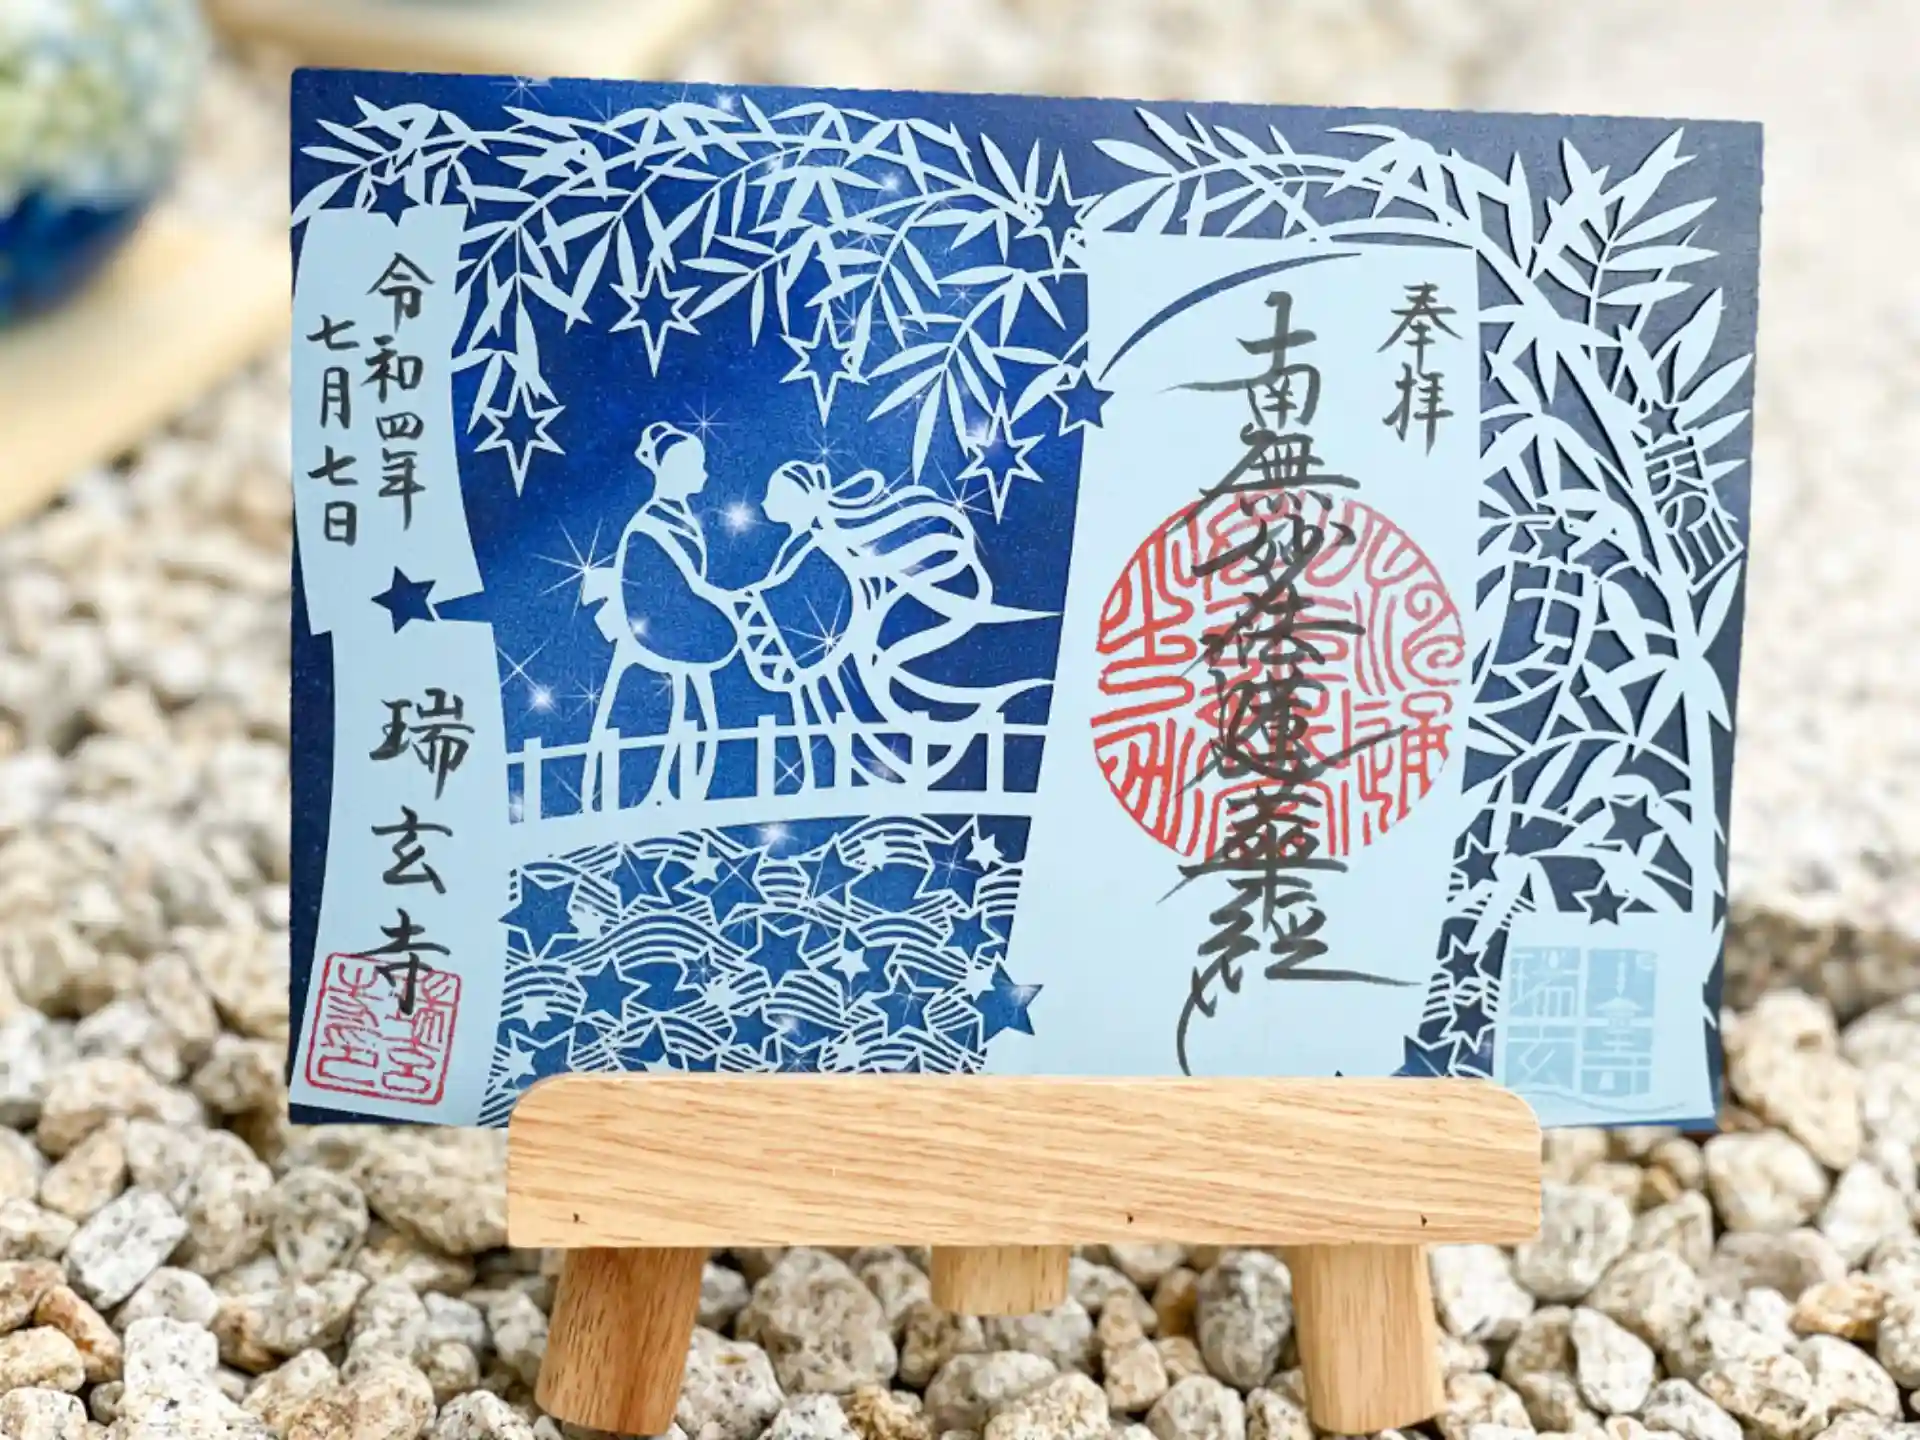 奉拝
南無妙法蓮華経
令和四年
七月七日
瑞玄寺
天の川